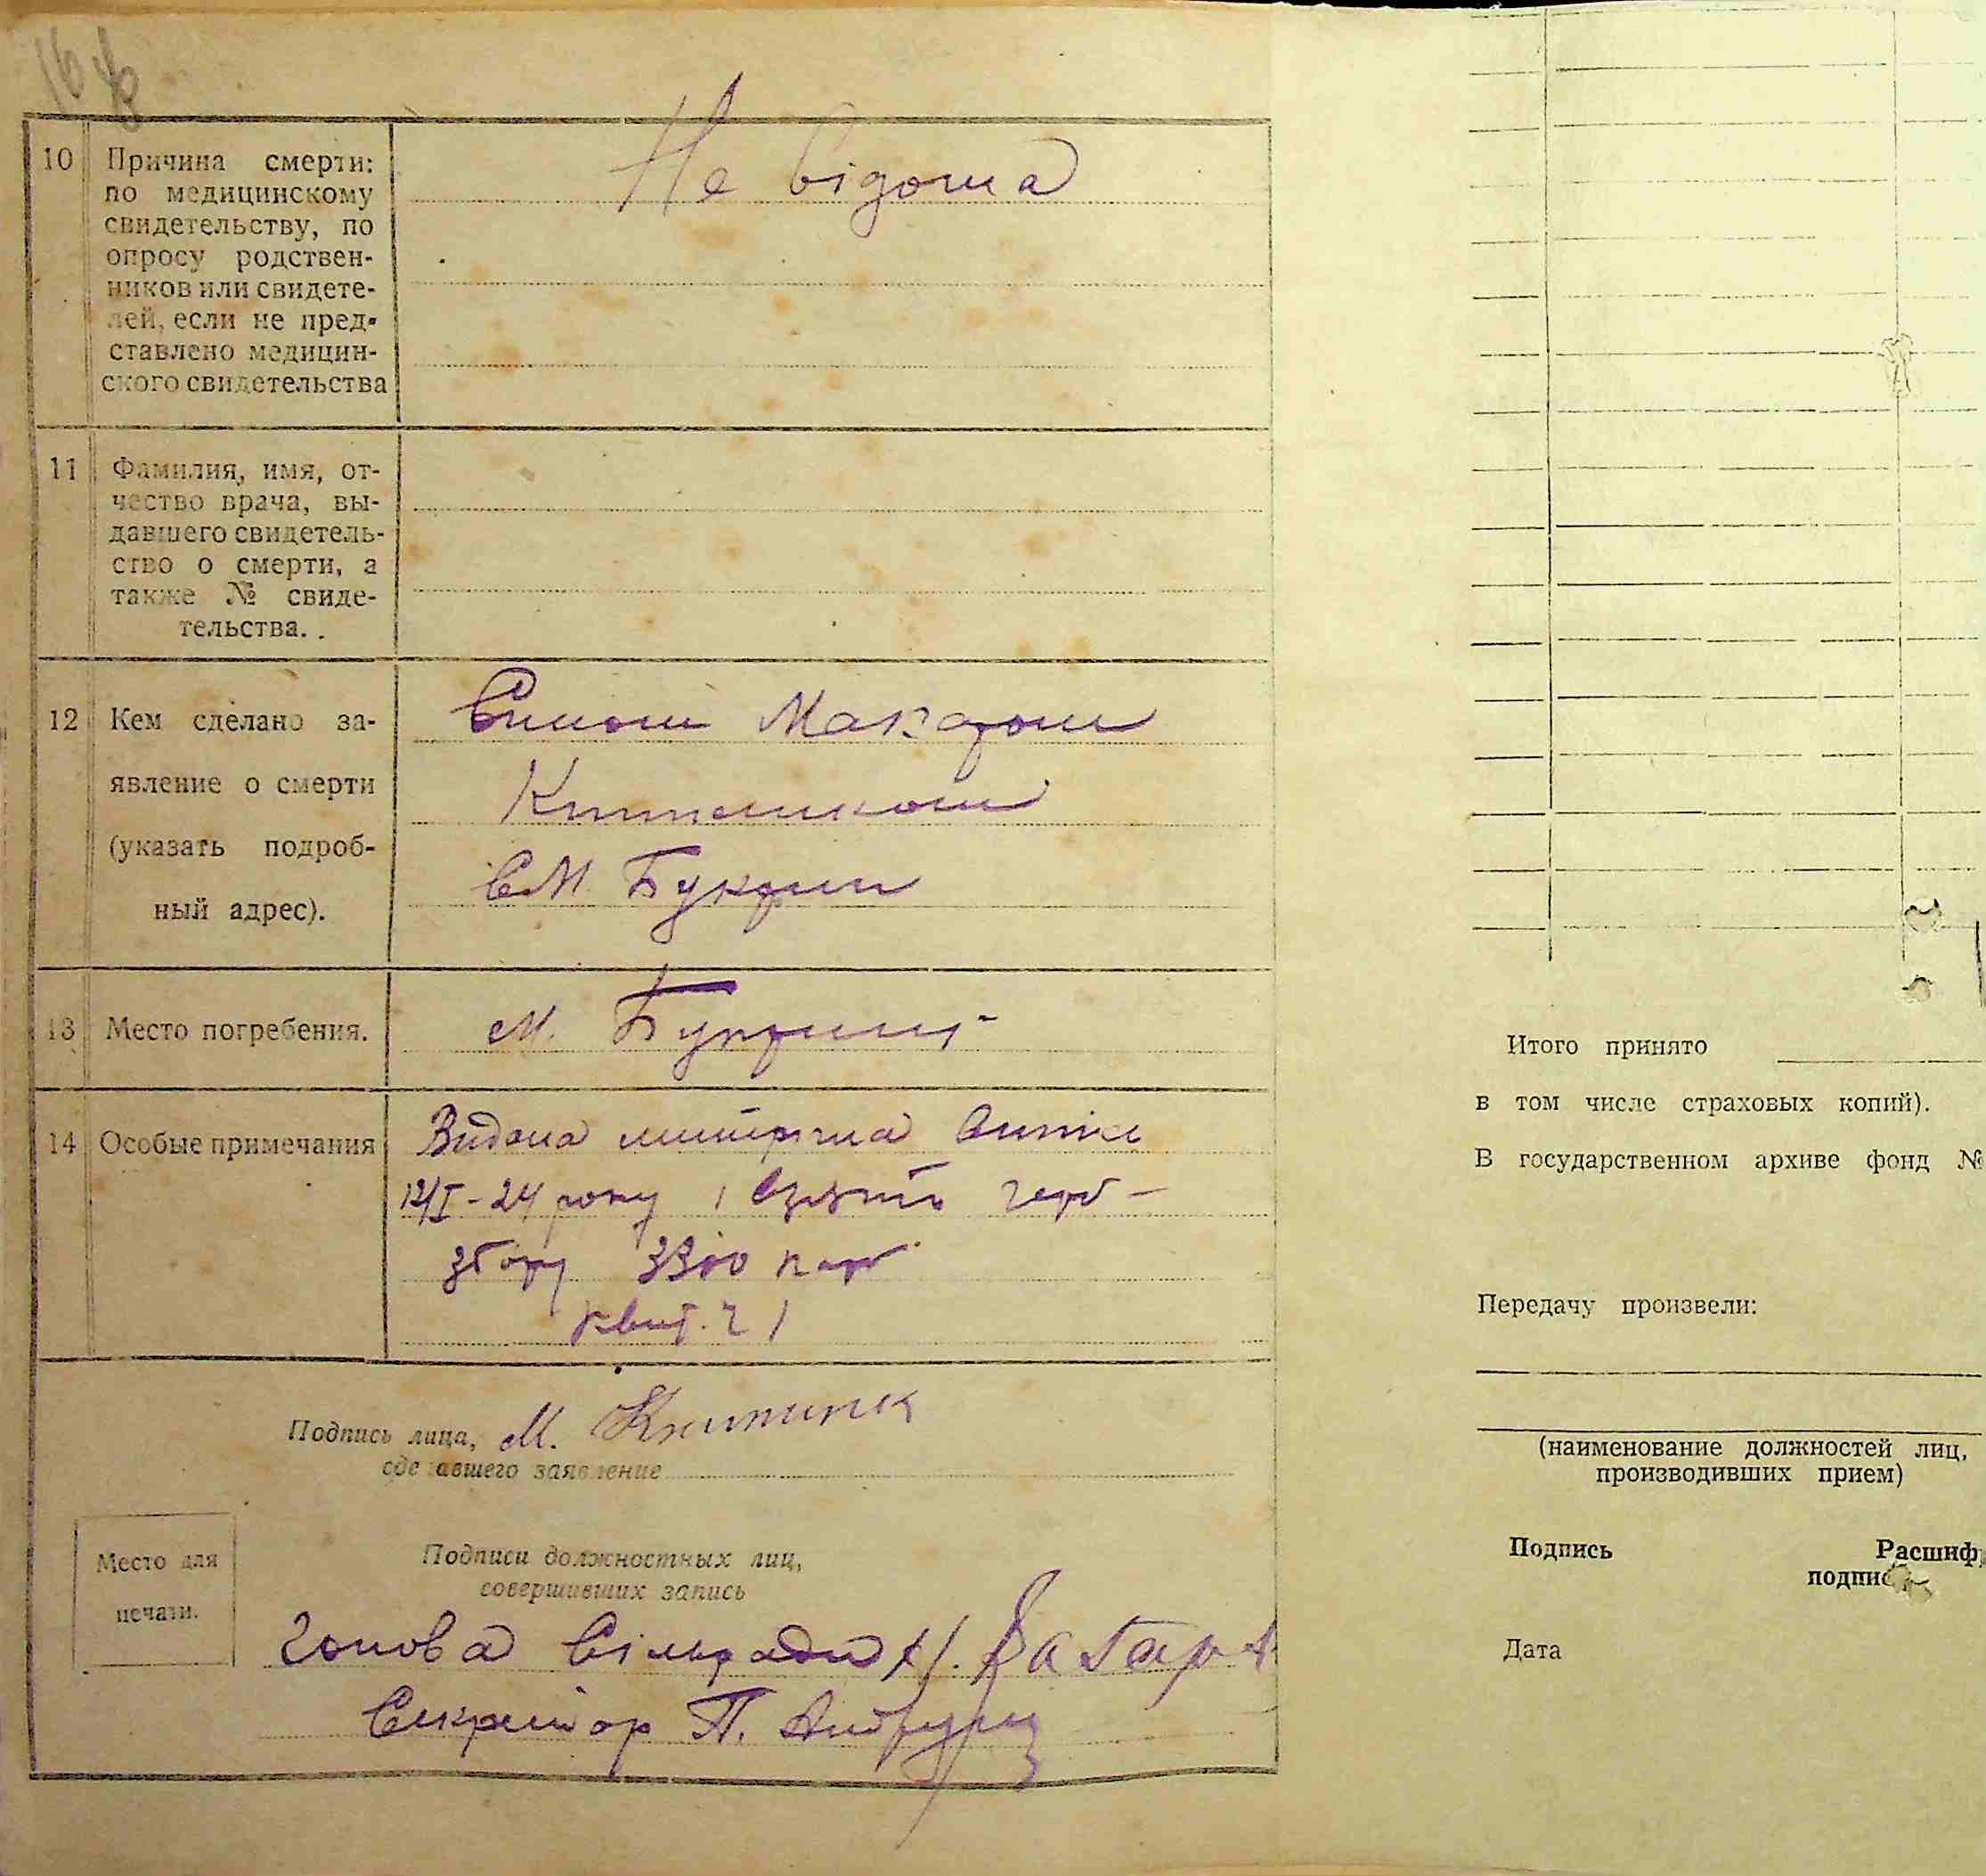 10 Причина смерти:
по медицинскому
свидетельству, по
опросу родствен-
ников или свидете-
лей, если не пред-
ставлено медицин-
ского свидетельства
Не відома
11 Фамилия, имя, от-
чество врача, вы-
давшего свидетель-
ство о смерти, а
также № свиде-
тельства. .
12 Кем сделано за-
явление о смерти
(указать подроб-
ный адрес).
Сином Макаром
См. Букрин
13 Место погребения.
м. Букрині
14 Особые примечания
Видана
12/I-24 року і взято герб-
збору 3300 карб
квит. ч 1
Подпись лица,
сделавшего заявление
М.
Место для
печати.
Подписи должностных лиц,
совершивших запись
Голова Сільради
Секретар П.
Итого принято
в том числе страховых копий).
В государственном архиве фонд №
Передачу произвели:
(наименование должностей лиц,
производивших прием)
Подпись Расшиф
подпис
Дата